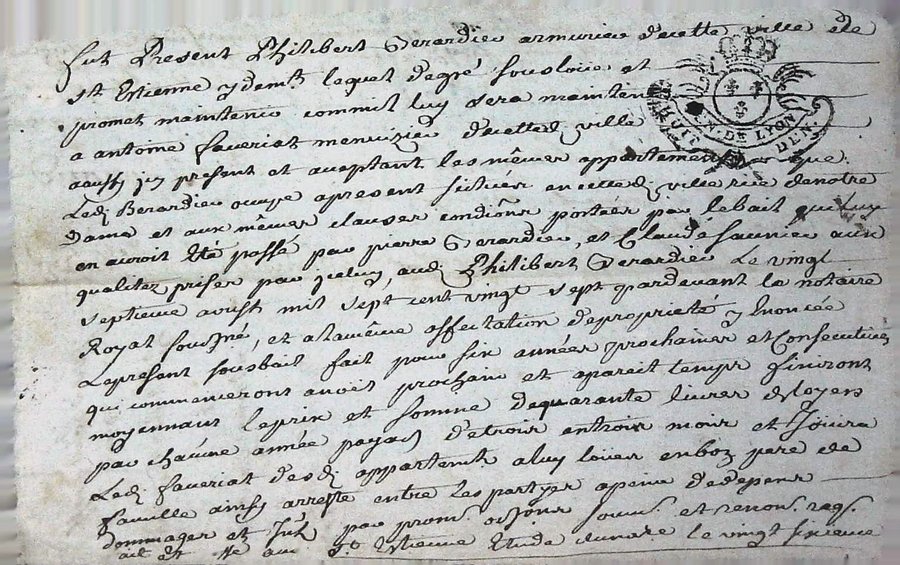 fut Present Philibert Berardier armurier decette ville de
st Etienne y demt lequel degré sousloüe et
promet maintenir comme il luy sera maintenu
a antoine faveriat menuizier decetted. ville
aussy icy present et aceptant les mêmes appartements que
Led. Berardier ocupe apresent scitüés en cetted. ville rüe denotre
Dame et aux mêmes clauses condions portées par le bail qui luy
en auroit été passé par pierre Berardier, et Claude faunier aux
qualitez prises par jceluy, aud. Philibert Berardier Le vingt
septieme aoust mil sept cent vingt sept pardevant le notaire
Royal sousné, et alamême affectation depropriété y Enoncée
Lepresent sousbail fait pour six années prochaines et Consecutives
qui commenceront a noel prochain et apareil temps finiront
moyennant leprix et somme dequarante livres de loyers
par chacune année payab. de trois entrois mois et Joüira
Led. faveriat desd. appartemts a luy loüés enbon pere de
famille ainsy arresté entre les partyes apeine dedepens
dommages et Jnts par proms. et renons.
fait et st Etienne Etude le vingt sixieme
GN. DE LYON